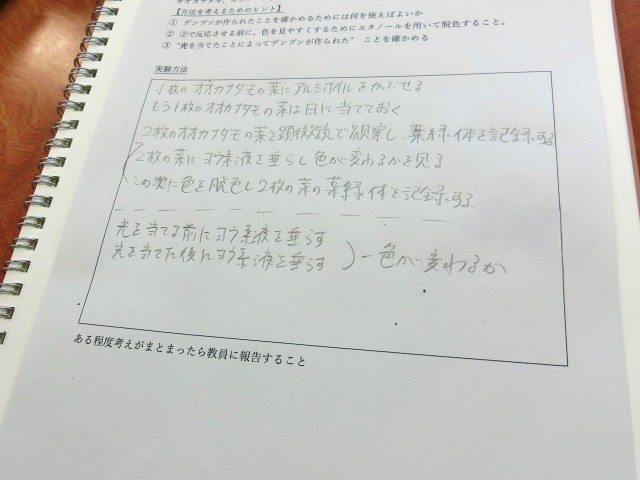 【方法を考えるためのヒント】
① デンプンが作られたことを確かめるためには何を使えばよいか
② ②で反応させる前に、色を見やすくするためにエタノールを用いて脱色すること。
③ "光を当てたことによってデンプンが作られた" ことを確かめる
実験方法
1枚のオオカナダモの葉にアルミホイルをかぶせる
もう1枚のオオカナダモの葉は日に当てておく
2枚のオオカナダモの葉を顕微鏡で観察し、葉緑体を記録する
2枚の葉にヨウ素液を垂らし色が変わるかを見る
この次に色を脱色し2枚の葉の葉緑体を記録する
光を当てる前にヨウ素液を垂らす
光を当てた後にヨウ素液を垂らす
色が変わるか
ある程度考えがまとまったら教員に報告すること